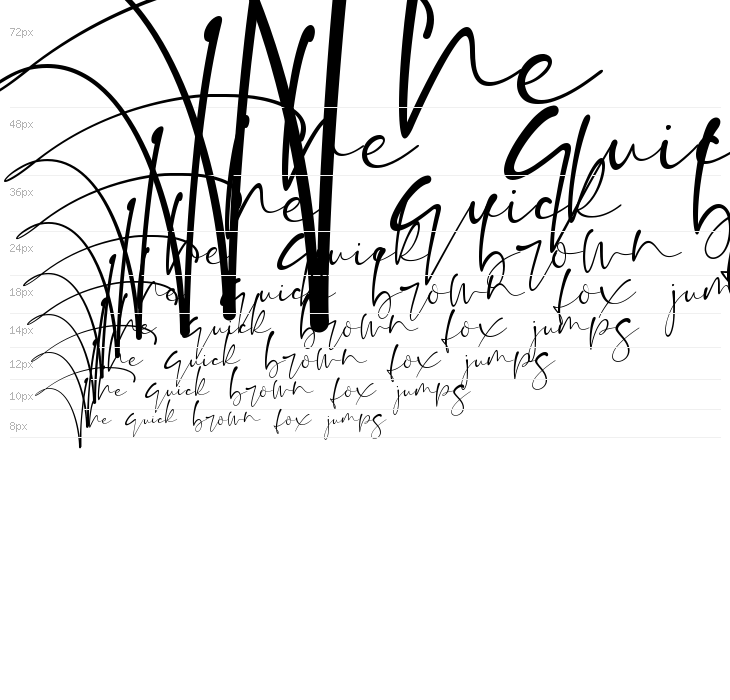 72px The
48px The quic
36px The quick b
24px The quick brown
18px The quick brown fox jum
14px The quick brown fox jumps
12px The quick brown fox jumps
10px The quick brown fox jumps
8px The quick brown fox jumps